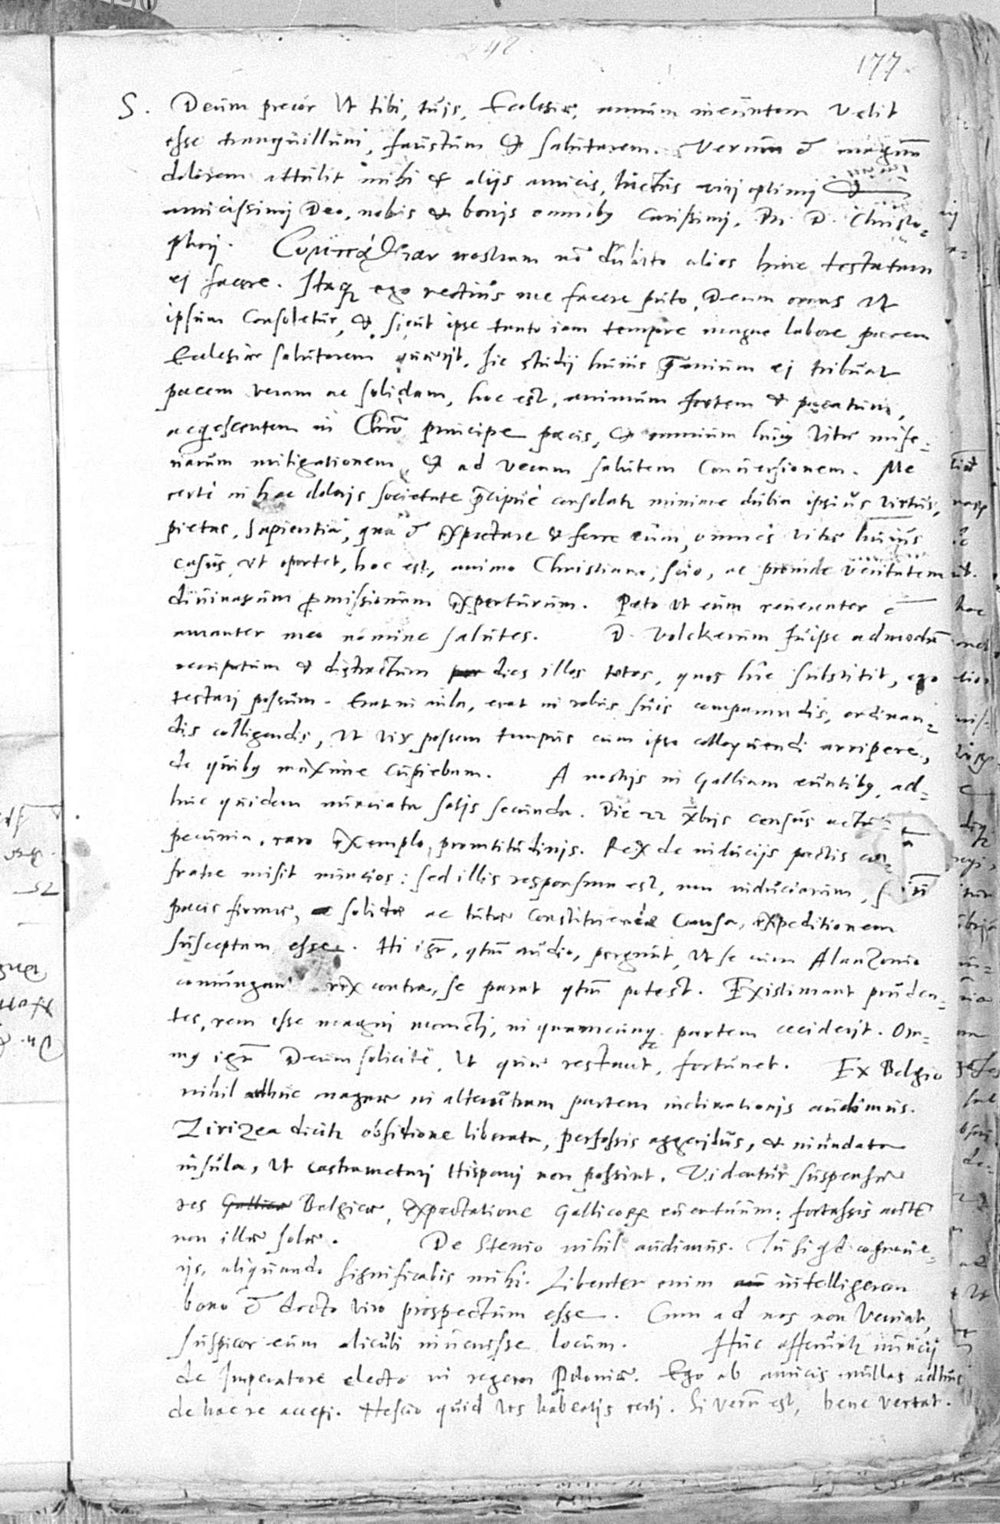 248
177
S. Deum precor ut tibi, tuis, Ecclesiae, annum ineuntem velit
esse tranquillum, faustum et salutarem. Verum magnum
dolorem attulit mihi et aliis amicis, luctus viri optimi
amicissimi Deo, nobis et bonis omnibus carissimi, Dn. D. Christo-
phori. nostram nō dubito alios hinc testatam
ei facere. Itaque ego rectius me facere puto, Deum orans ut
ipsum consoletur, et, sicut ipse tanto iam tempore magno labore pacem
Ecclesiae salutarem quaerit, sic studii huius praemium ei tribuat
pacem veram ac solidam, hoc est, animum fortem et pacatum,
acquiescentem in Christo principe pacis, et omnium huius vitae mise-
riarum mitigationem, et ad veram salutem conversionem. Me
certe in hac doloris societate praecipue consolatur minime dubia ipsius virtus,
pietas, sapientia, qua expectare et ferre eum, omnes vitae huius
casus, ut oportet, hoc est, animo Christiano, scio, ac proinde veritatem
divinarum promissionum experturum. Peto ut eum reverenter
amanter meo nomine salutes. D. Volckerum fuisse admodū
occupatum et distractum dies illos totos, quos hic substitit, ego
testari possum. Erat in aula, erat in rebus suis comparandis, ordinan-
dis colligendis, ut vix possem tempus cum ipso colloquendi arripere,
de quibus maxime cupiebam. A nostris in Galliam euntibus, ad-
huc quidem nunciata satis secunda. Die 22 xbris census
pecunia, raro exemplo, promtitudinis. Rex de induciis pactis cum
fratre misit nuncios: sed illis responsum est, non induciarum, s
pacis firmae, solidae ac tutae constituendae causa, expeditionem
susceptam esse. Hi igr, qtm audio, pergunt, ut se cum Alanzonio
coniungant rex contra, se parat qtm potest. Existimant pruden-
tes, rem esse magni momenti, in quamcunque partem ceciderit. Ora-
mus igr Deum solicite, ut quae restant, fortunet. Ex Belgio
nihil adhuc magnae in alterutram partem inclinationis audimus.
Zirizea dicitur obsidione liberata, perfossis aggeribus, et inundata
insula, ut castrametari Hispani non possint. Videntur suspensae
res Gallicae Belgicae, expectatione Gallicorum eventuum: fortassis autē
non illae solae. De Stenio nihil audimus. Tu si qd cognove-
ris, aliquando significabis mihi. Libenter enim intelligerem
bono et docto viro prospectum esse. Cum ad nos non veniat,
suspicor eum alicubi invenisse locum. Huc afferuntur nuncii
de Imperatore electo in regem Poloniae. Ego ab amicis nullas adhuc
de hac re accepi. Nescio quid vos habeatis certi. Si verum est, bene vertat.